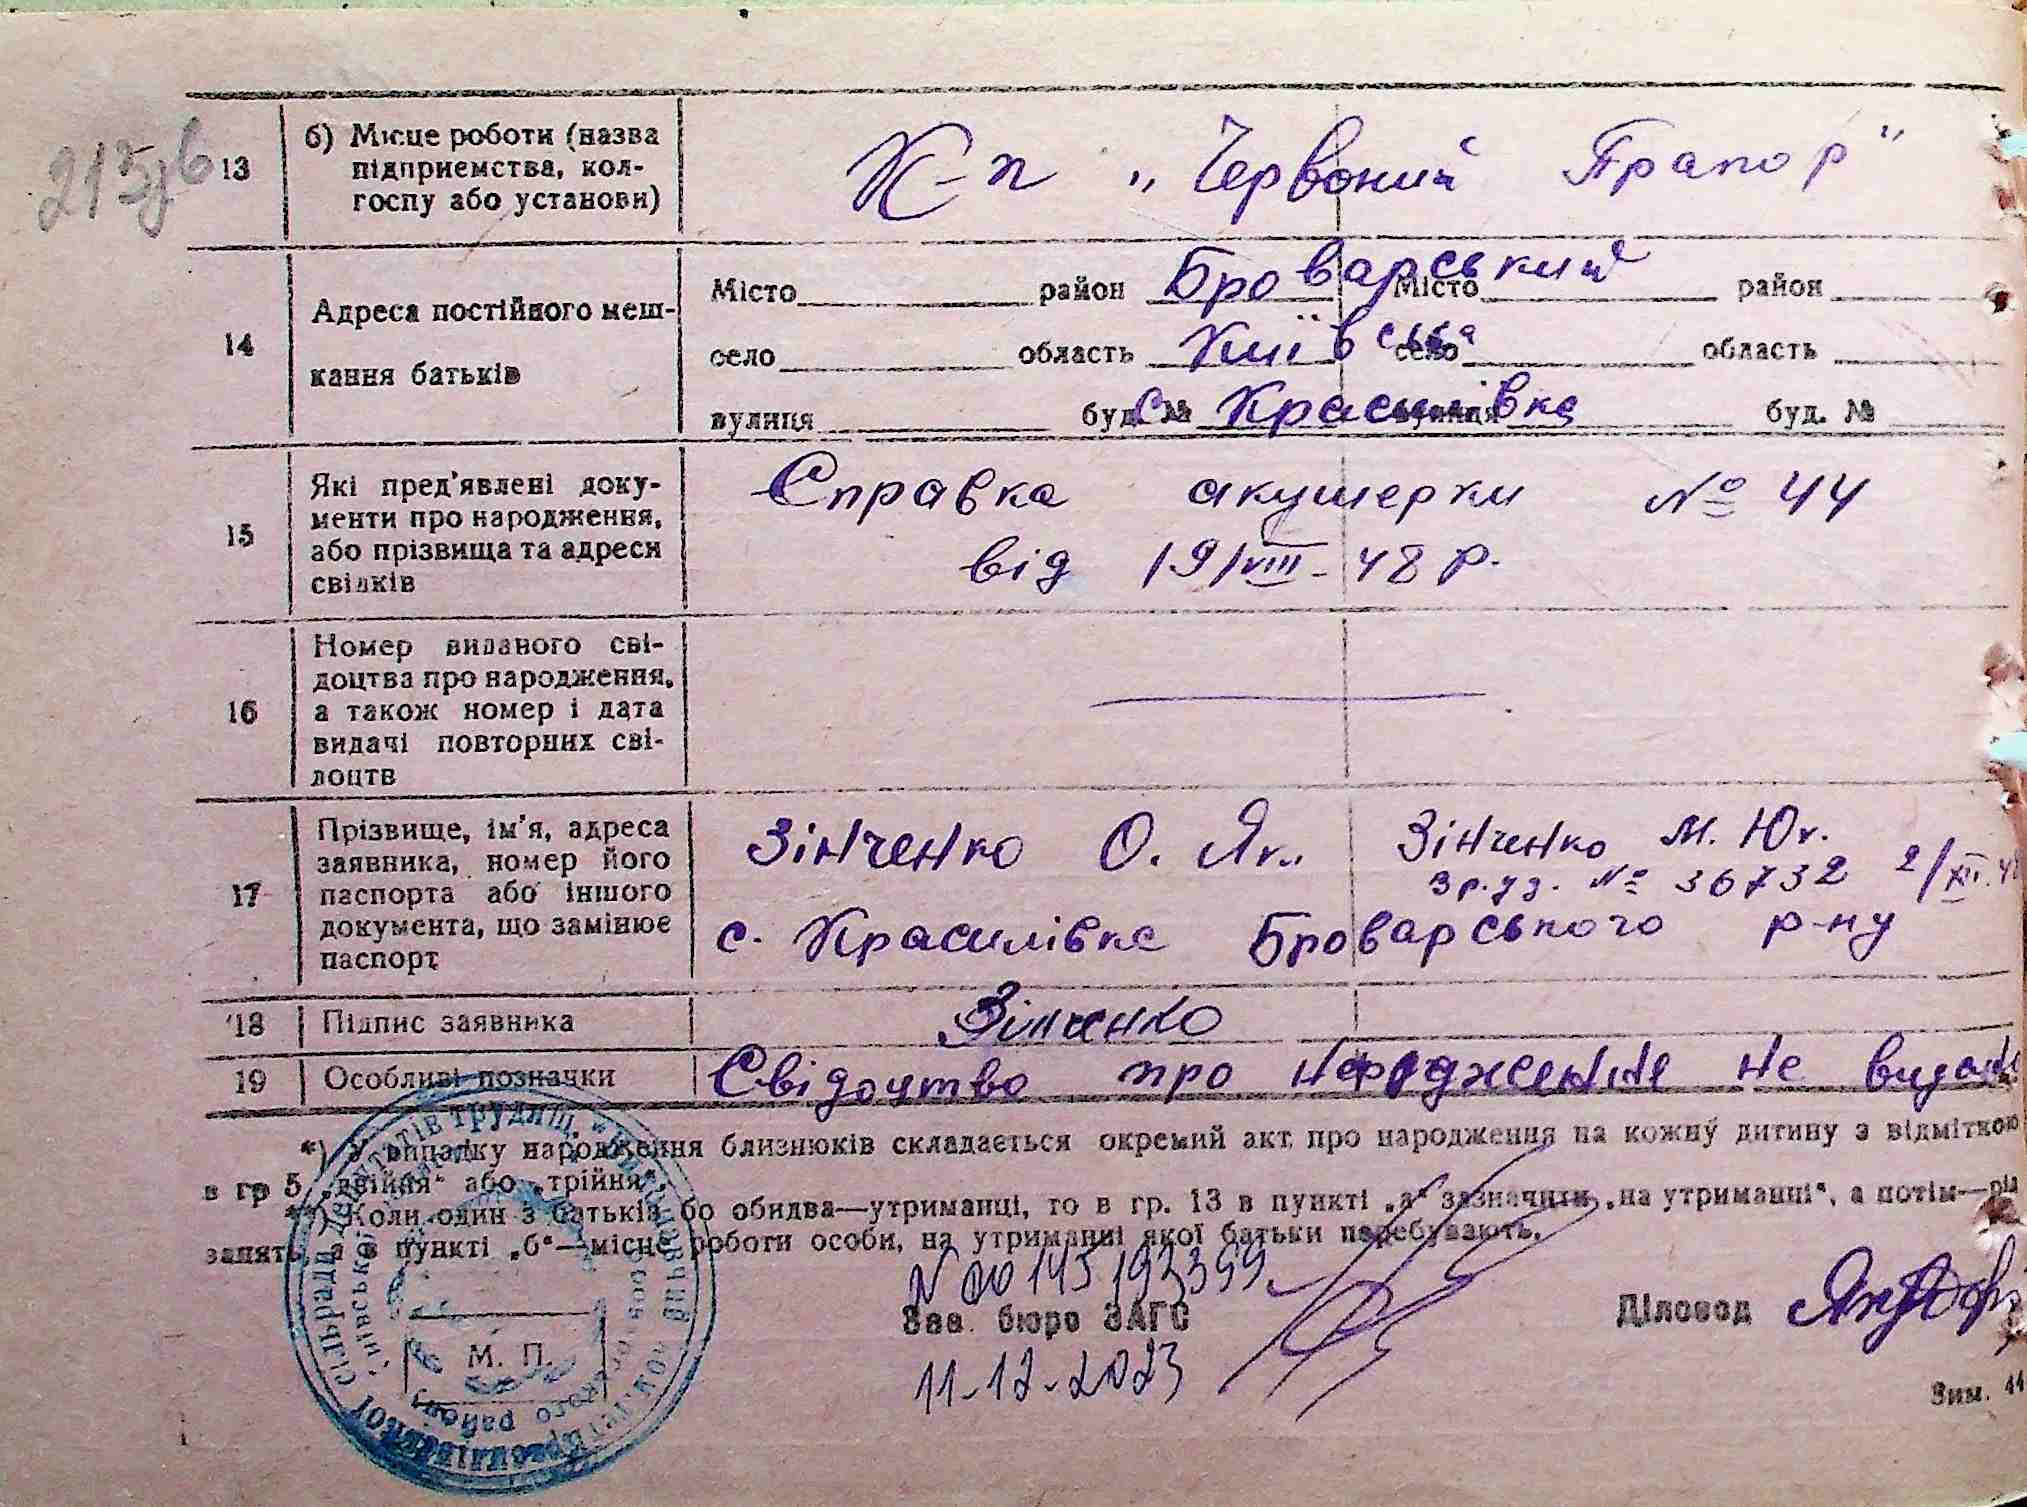 213зв
13 б) Місце роботи (назва підприємства, колгоспу або установи)
К-п „Червоний Прапор"
14 Адреса постійного мешкання батьків
Місто район Броварський Місто район
село область Київська село область
вулиця буд. № с. Красилівка вулиця буд. №
15 Які пред'явлені документи про народження, або прізвища та адреси свідків
Справка акушерки № 44
від 19/VIII-48 р.
16 Номер виданого свідоцтва про народження, а також номер і дата видачі повторних свідоцтв
17 Прізвище, ім'я, адреса заявника, номер його паспорта або іншого документа, що замінює паспорт
Зінченко О. Як. Зінченко М. Юх.
№ 36732 2/XII.48
с. Красилівка Броварського р-ну
18 Підпис заявника Зінченко
19 Особливі позначки Свідоцтво про народження не видан
*) У випадку народження близнюків складається окремий акт про народження на кожну дитину з відміткою
в гр 5 „двійня" або „трійня".
**) Коли один з батьків або обидва—утриманці, то в гр. 13 в пункті „а" зазначити „на утриманні", а потім—рід
занять, а в пункті „б"—місце роботи особи, на утриманні якої батьки перебувають.
N 00145193399
Зав. бюро ЗАГС Діловод
11-12-2023
М. П.
Зим. 44